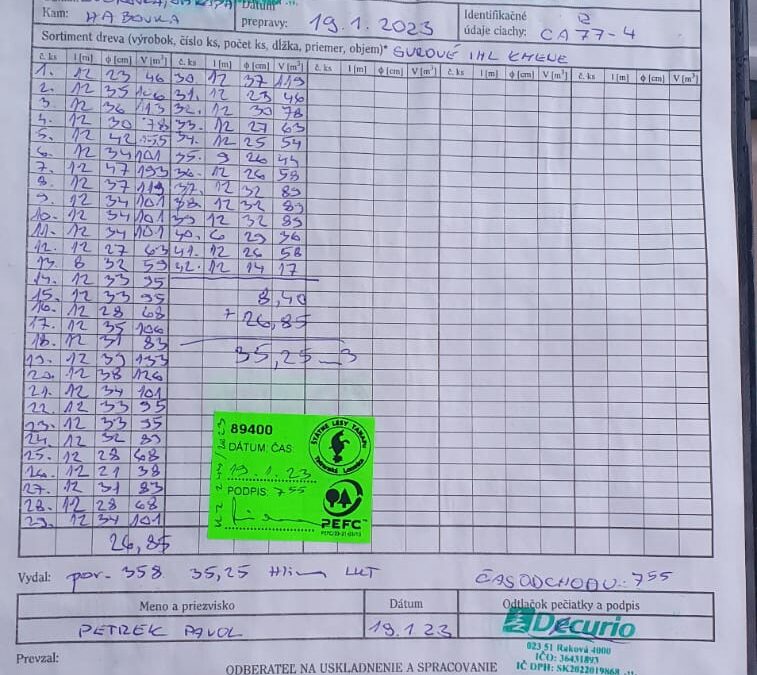 Kam: HABOVKA
Dátum prepravy: 19.1.2023
Identifikačné údaje ciachy: CA 77-4
Sortiment dreva (výrobok, číslo ks, počet ks, dĺžka, priemer, objem)* SUROVÉ IHL KMENE
č. ks l [m] ϕ [cm] V [m³] č. ks l [m] ϕ [cm] V [m³] č. ks l [m] ϕ [cm] V [m³] č. ks l [m] ϕ [cm] V [m³] č. ks l [m] ϕ [cm] V [m³]
1. 12 23 46 30 12 37 119
2. 12 35 106 31. 12 23 46
3. 12 36 113 32. 12 30 78
4. 12 30 78 33. 12 27 63
5. 12 42 155 34. 12 25 54
6. 12 34 101 35. 9 26 44
7. 12 47 193 36. 12 26 58
8. 12 37 119 37. 12 32 89
9. 12 34 101 38 12 32 89
10. 12 34 101 39 12 32 89
11. 12 34 101 40. 6 29 36
12. 12 27 63 41. 12 26 58
13. 8 32 59 42. 12 14 17
14. 12 33 95
15. 12 33 95 8,40
16. 12 28 68 + 26,85
17. 12 35 106
18. 12 31 83 35,25
19. 12 39 133
20. 12 38 126
21. 12 34 101
22. 12 33 95
23. 12 33 95
24. 12 32 89
25. 12 28 68
26. 12 21 38
27. 12 31 83
28. 12 28 68
29. 12 34 101
26,85
89400
DÁTUM: ČAS
19.1.23
PODPIS: 7 55
ŠTÁTNE LESY TANAPU
Tatranská Lomnica
PEFC™
Vydal: por. 358 35,25
ČAS ODCHODU: 7 55
Meno a priezvisko Dátum Odtlačok pečiatky a podpis
PETREK PAVOL 19.1 23
Decurio
023 51 Raková 4000
IČO: 36431893
IČ DPH: SK2022019868
Prevzal:
ODBERATEĽ NA USKLADNENIE A SPRACOVANIE